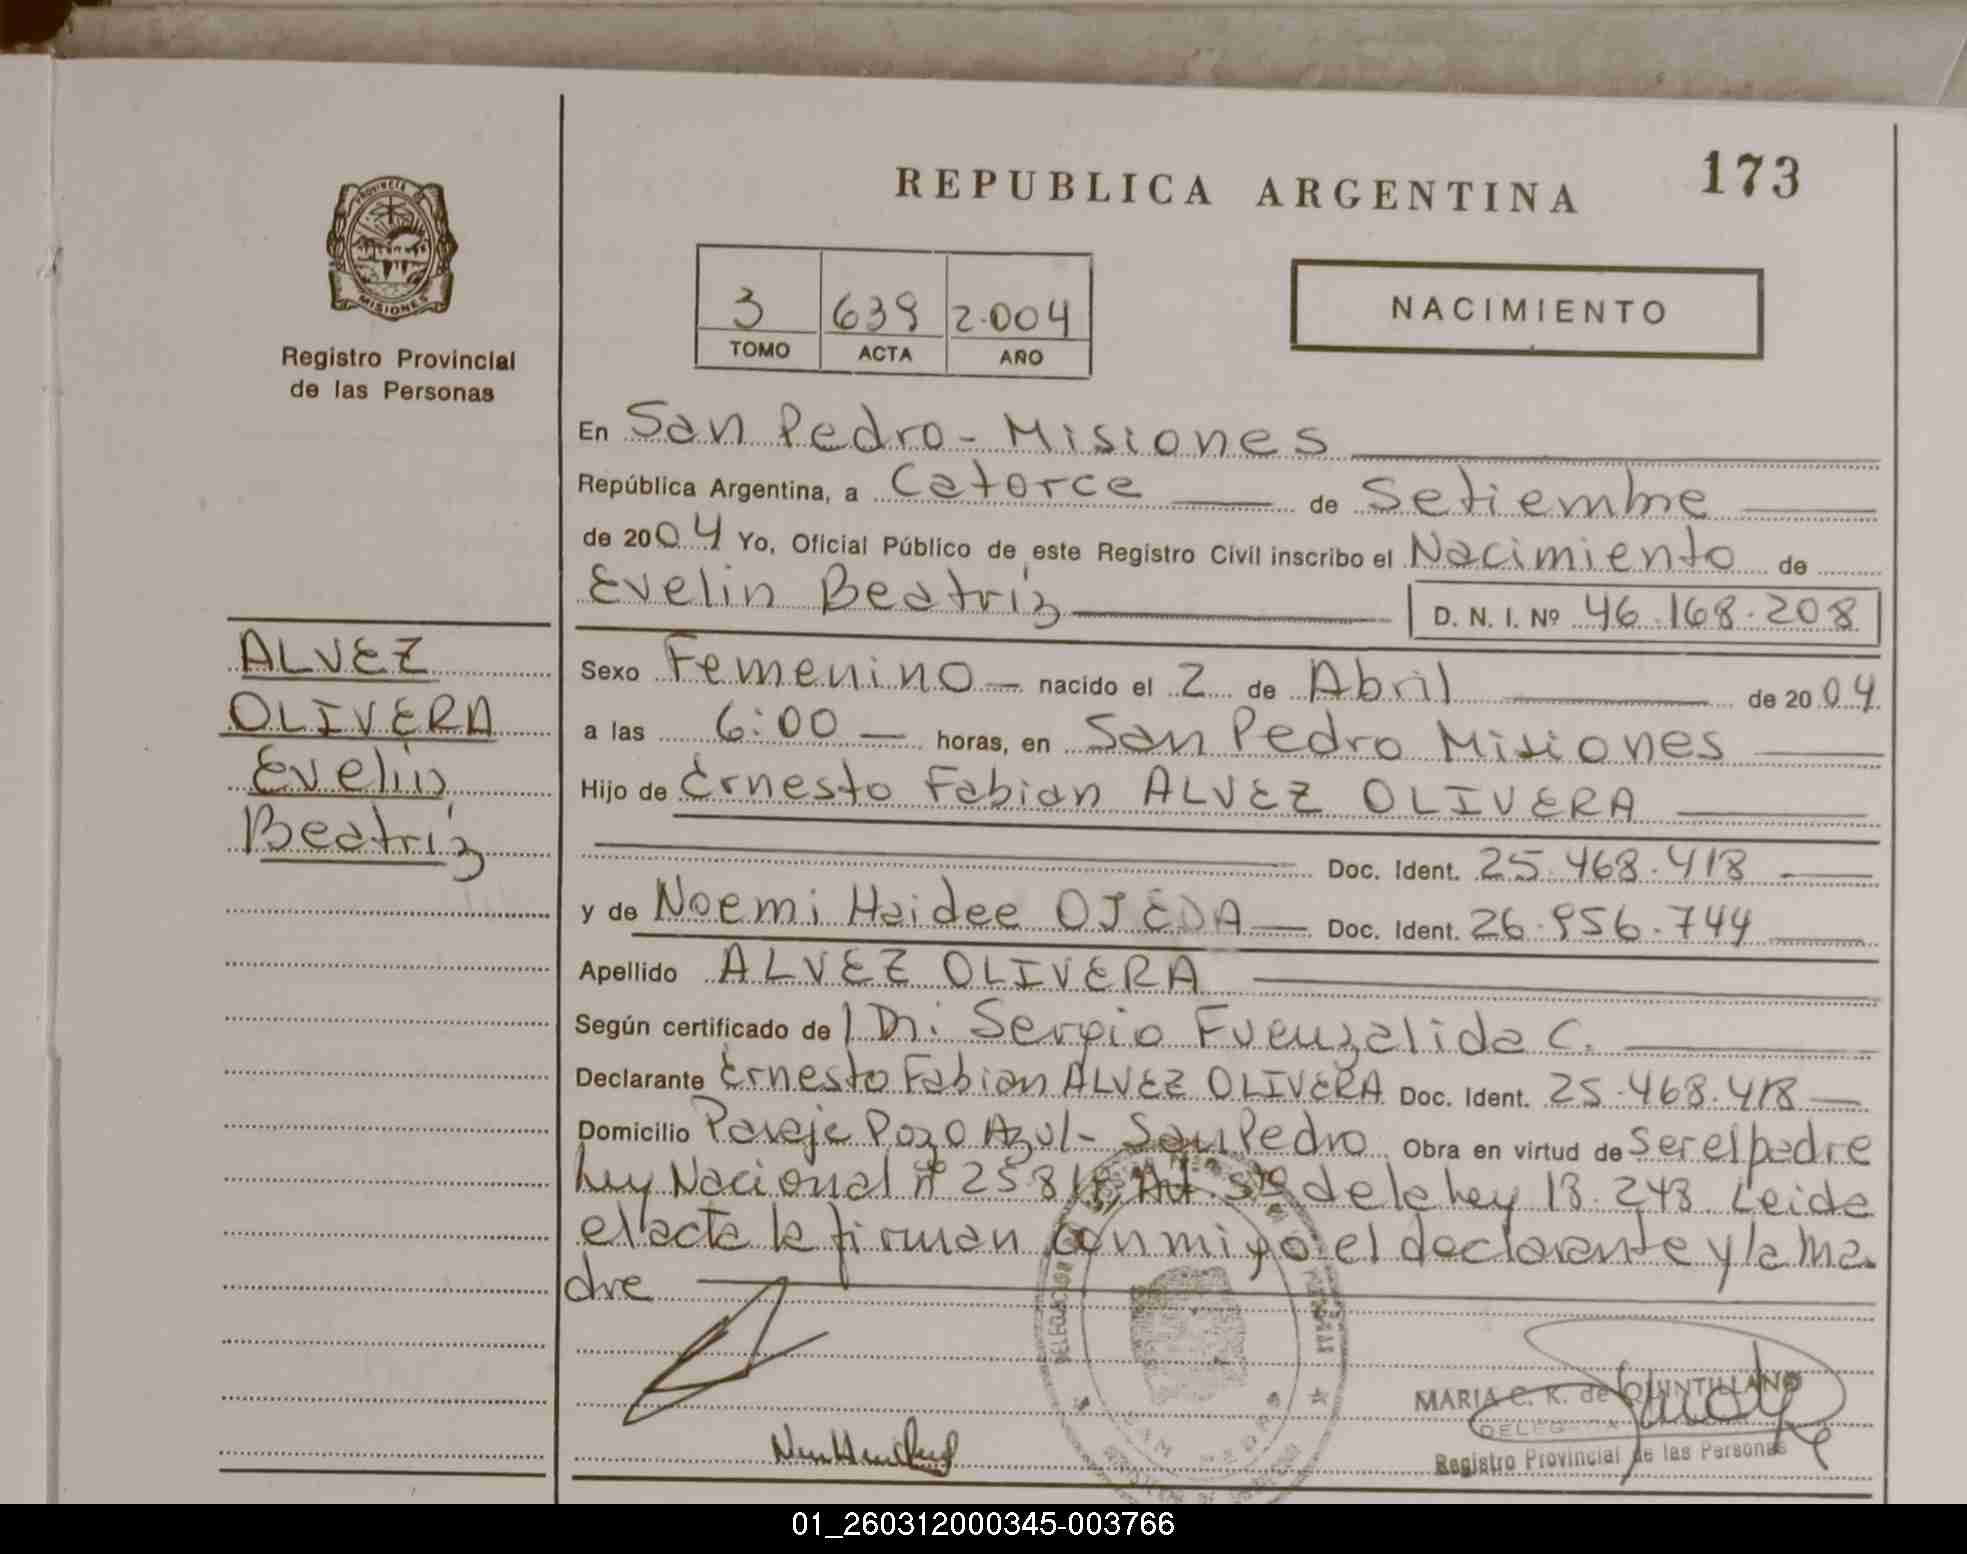 REPUBLICA ARGENTINA
173
PROVINCIA DE
MISIONES
Registro Provincial
de las Personas
3 639 2.004
TOMO ACTA AÑO
NACIMIENTO
En San Pedro - Misiones
República Argentina, a Catorce de Setiembre
de 2004 Yo, Oficial Público de este Registro Civil inscribo el Nacimiento de
Evelin Beatriz D. N. I. Nº 46.168.208
ALVEZ
OLIVERA
Evelin
Beatriz
Sexo Femenino nacido el 2 de Abril de 2004
a las 6:00 horas, en San Pedro Misiones
Hijo de Ernesto Fabian ALVEZ OLIVERA
Doc. Ident. 25.468.418
y de Noemi Haidee OJEDA Doc. Ident. 26.956.744
Apellido ALVEZ OLIVERA
Según certificado de Dr. Sergio Fuenzalida C.
Declarante Ernesto Fabian ALVEZ OLIVERA Doc. Ident. 25.468.418
Domicilio Paraje Pozo Azul - San Pedro Obra en virtud de Ser el padre
Ley Nacional nº 25.818 Art. 5to de la Ley 18.248. Leida
el acta la firman conmigo el declarante y la ma
dre
SAN PEDRO
MARIA C. K. de QUINTILLANO
DELEGADA
Registro Provincial de las Personas
01_260312000345-003766